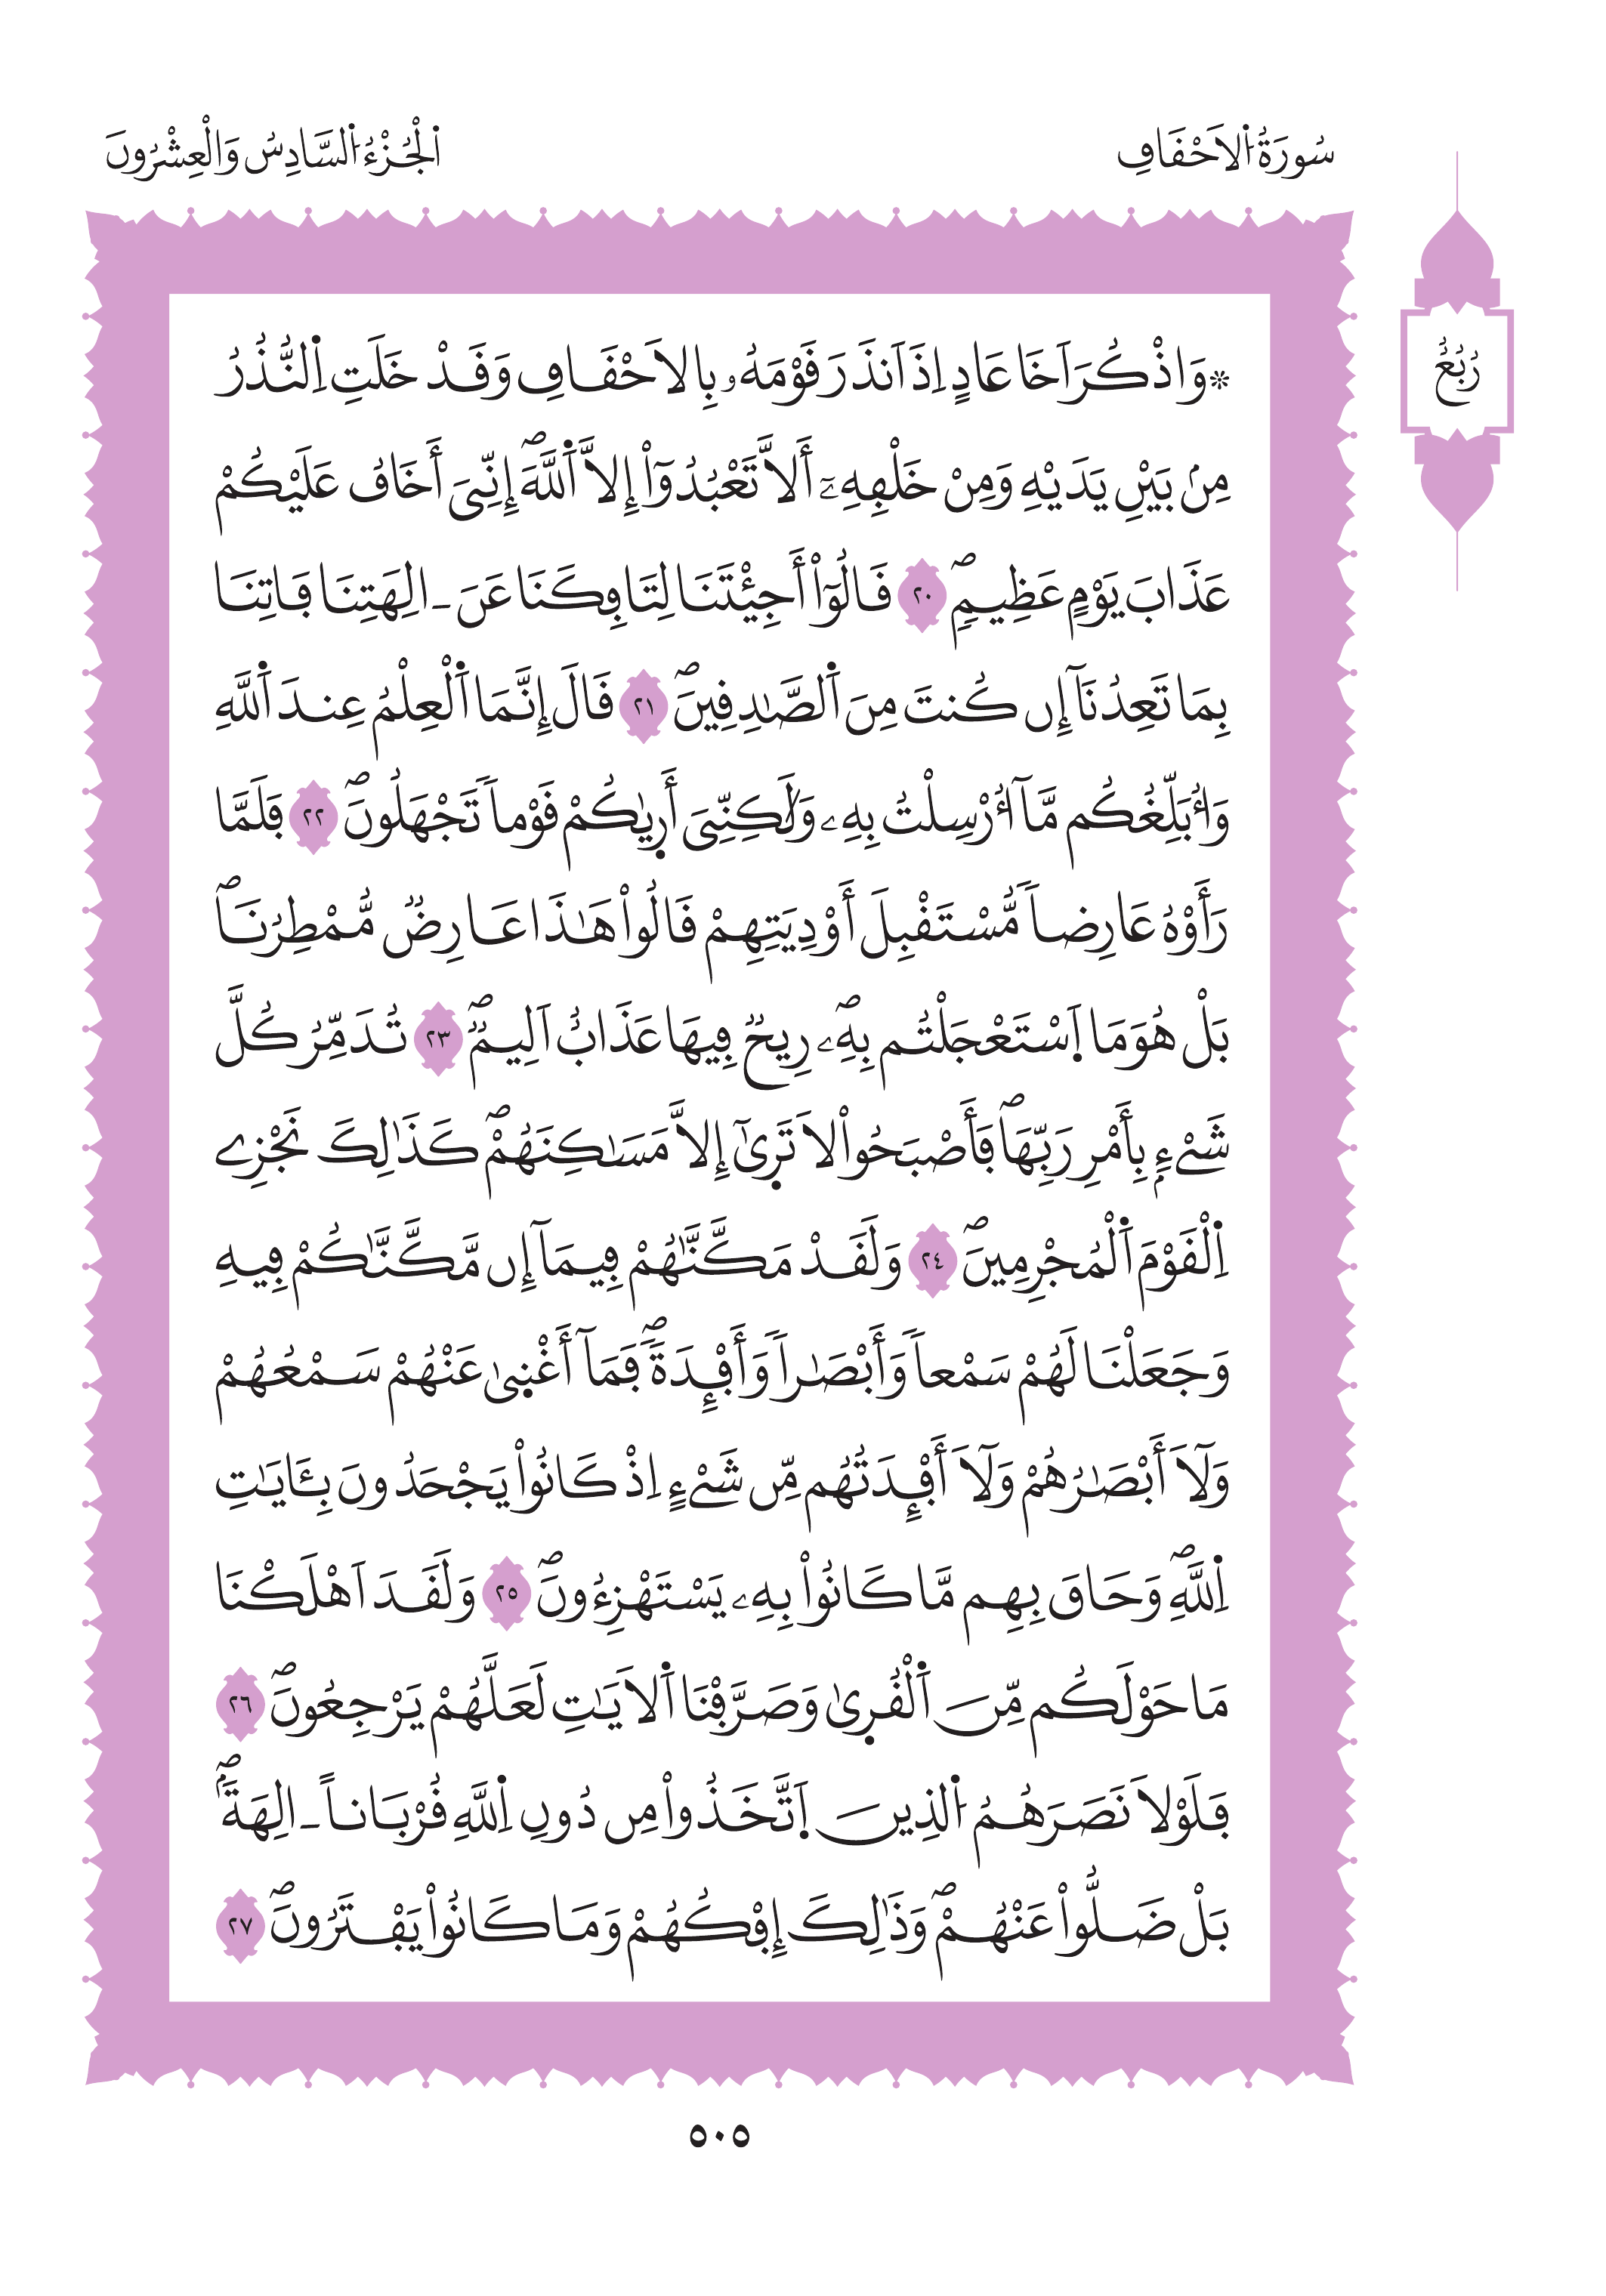 سُورَةُ اُ۬لَاحْقَافِ
اَ۬لْجُزْءُ اُ۬لسَّادِسُ وَالْعِشْرُونَ
رُبُعُ
۞وَاذْكُرَ اَخَا عَادٍ اِذَ اَنذَرَ قَوْمَهُۥ بِالَاحْقَافِ وَقَدْ خَلَتِ اِ۬لنُّذُرُ
مِنۢ بَيْنِ يَدَيْهِ وَمِنْ خَلْفِهِۦٓ أَلَّا تَعْبُدُوٓاْ إِلَّا اَ۬للَّهَۖ إِنِّيَ أَخَافُ عَلَيْكُمْ
عَذَابَ يَوْمٍ عَظِيمٖۖ ٢٠ قَالُوٓاْ أَجِئْتَنَا لِتَافِكَنَا عَنَ ـ الِهَتِنَا فَاتِنَا
بِمَا تَعِدُنَآ إِن كُنتَ مِنَ اَ۬لصَّٰدِقِينَۖ ٢١ قَالَ إِنَّمَا اَ۬لْعِلْمُ عِندَ اَ۬للَّهِ
وَأُبَلِّغُكُم مَّآ أُرْسِلْتُ بِهِۦ وَلَٰكِنِّيَ أَر۪يٰكُمْ قَوْماٗ تَجْهَلُونَۖ ٢٢ فَلَمَّا
رَأَوْهُ عَارِضاٗ مُّسْتَقْبِلَ أَوْدِيَتِهِمْ قَالُواْ هَٰذَا عَارِضٞ مُّمْطِرُنَاۖ
بَلْ هُوَ مَا اَ۪سْتَعْجَلْتُم بِهِۦۖ رِيحٞ فِيهَا عَذَابٌ اَلِيمٞۖ ٢٣ تُدَمِّرُ كُلَّ
شَےْءِۢ بِأَمْرِ رَبِّهَاۖ فَأَصْبَحُواْ لَا تَر۪يٰٓ إِلَّا مَسَٰكِنَهُمْۖ كَذَٰلِكَ نَجْزِے
اِ۬لْقَوْمَ اَ۬لْمُجْرِمِينَۖ ٢٤ وَلَقَدْ مَكَّنَّٰهُمْ فِيمَآ إِن مَّكَّنَّٰكُمْ فِيهِ
وَجَعَلْنَا لَهُمْ سَمْعاٗ وَأَبْصَٰراٗ وَأَفْـِٕدَةٗۖ فَمَآ أَغْن۪يٰ عَنْهُمْ سَمْعُهُمْ
وَلَآ أَبْصَٰرُهُمْ وَلَآ أَفْـِٕدَتُهُم مِّن شَےْءٍ اِذْ كَانُواْ يَجْحَدُونَ بِـَٔايَٰتِ
اِ۬للَّهِۖ وَحَاقَ بِهِم مَّا كَانُواْ بِهِۦ يَسْتَهْزِءُونَۖ ٢٥ وَلَقَدَ اَهْلَكْنَا
مَا حَوْلَكُم مِّنَ اَ۬لْقُر۪يٰ وَصَرَّفْنَا اَ۬لَايَٰتِ لَعَلَّهُمْ يَرْجِعُونَۖ ٢٦
فَلَوْلَا نَصَرَهُمُ اُ۬لذِينَ اَ۪تَّخَذُواْ مِن دُونِ اِ۬للَّهِ قُرْبَاناً ـ الِهَةَۢۖ
بَلْ ضَلُّواْ عَنْهُمْۖ وَذَٰلِكَ إِفْكُهُمْ وَمَا كَانُواْ يَفْتَرُونَۖ ٢٧
٥٠٥